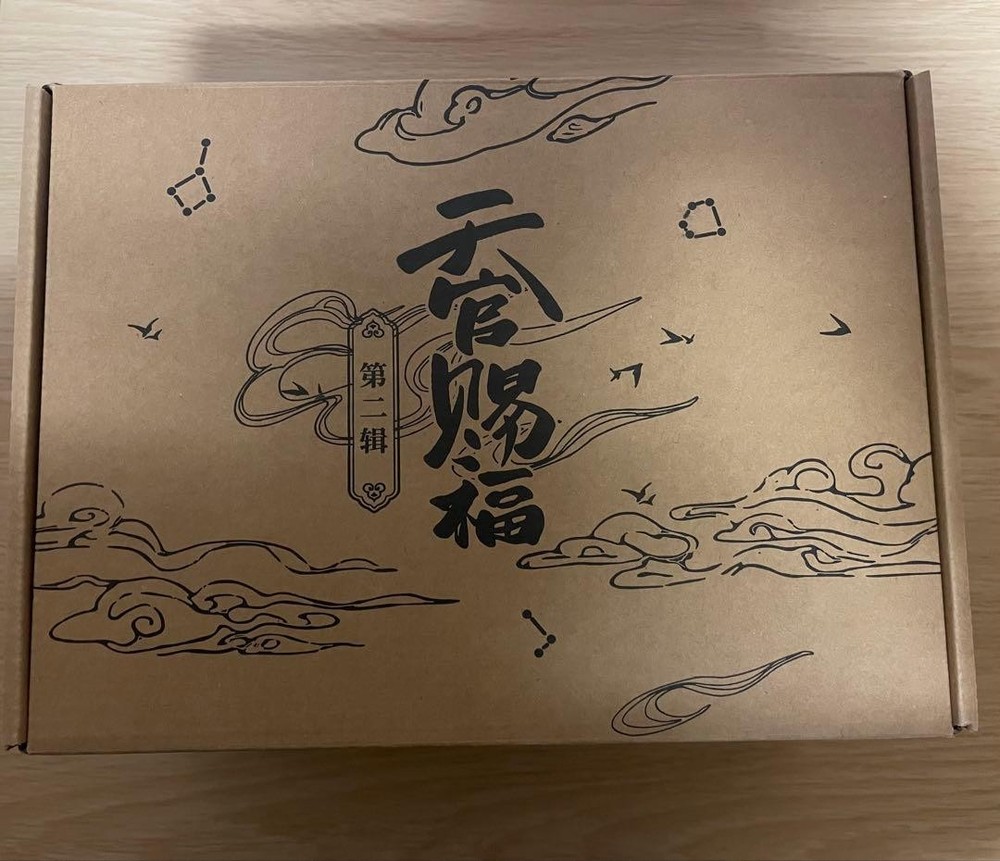 天官赐福
第二辑